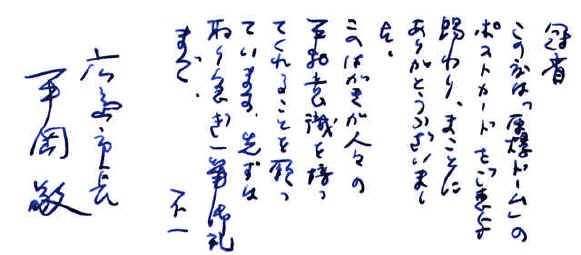 冠省
この度は「原爆ドーム」の
ポストカードをご恵与
賜わり、まことに
ありがとうございまし
た。
このはがきが人々の
平和意識を培っ
てくれることを願っ
ています。先ずは
取り急ぎ一筆御礼
まで。
不一
広島市長
平岡敬